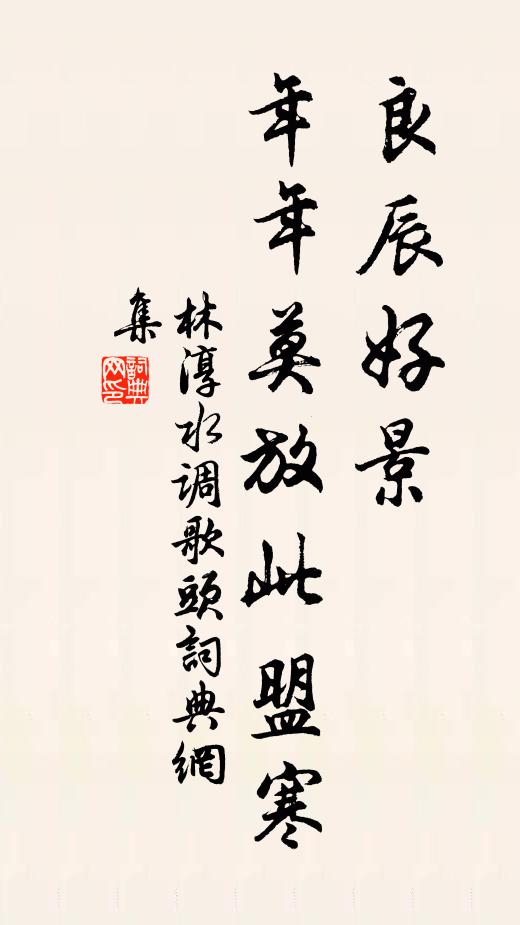 良辰好景
年年莫放此盟寒
林淳水调歌頭詞典網
集
詞典網印